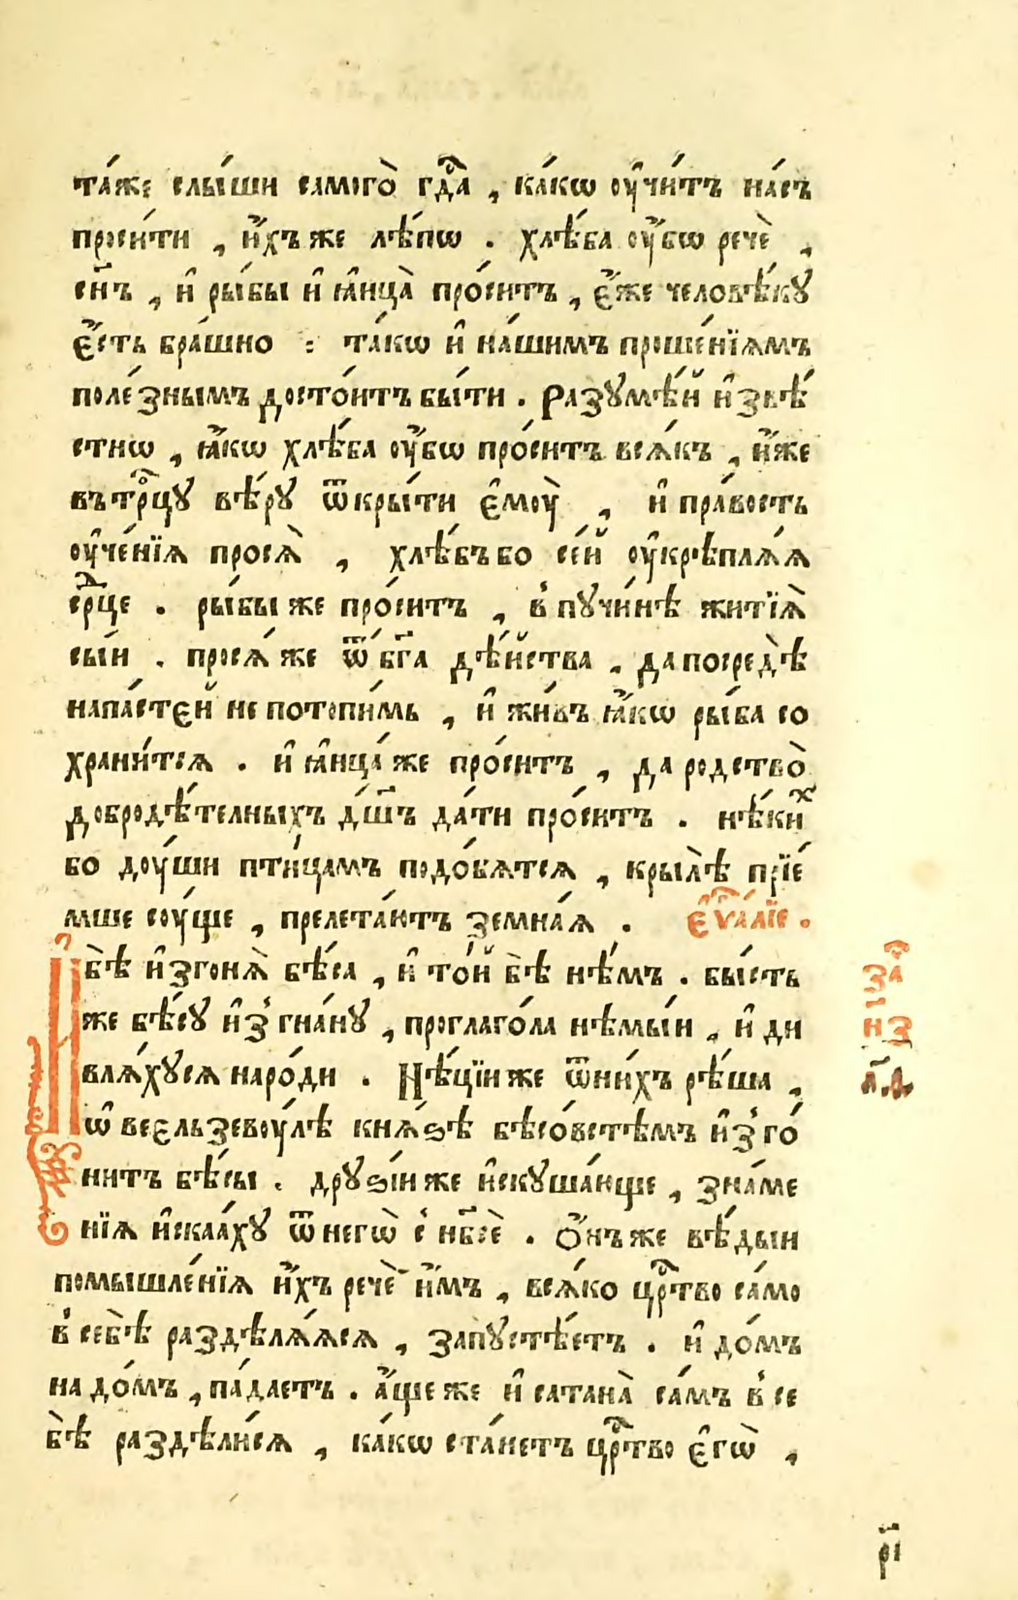 та́же слы́ши самого̀ гдⷭ҇а , ка́кѡ ᲂу҆чи́тъ на́съ
проси́ти , и҆́хъ же лѣ́пѡ . хлѣ́ба ᲂу҆́бѡ речѐ ,
сн҃ъ , и҆ ры́бы и҆ ꙗ҆ица̀ про́ситъ , є҆́же человѣ́кꙋ
є҆́сть бра́шно : та́кѡ и҆ на́шимъ проше́нїѧмъ
поле́знымъ досто́итъ бы́ти . Разꙋмѣ́й и҆звѣ́
стнѡ , ꙗ҆́кѡ хлѣ́ба ᲂу҆́бѡ про́ситъ всѧ́къ , и҆́же
въ трⷪ҇цꙋ вѣ́рꙋ ѿкры́ти є҆моу̀ , и҆ пра́вость
ᲂу҆че́нїѧ просѧ̀ , хлѣ́бъ бо се́й ᲂу҆крѣплѧ́ѧ
срⷣце . ры́бы же про́ситъ , в̾ пꙋчи́нѣ житїѧ̀
сы́и . просѧ́ же ѿ бг҃а дѣ́йства , да посредѣ̀
напа́стєй не пото́пимь , и҆ жи́въ ꙗ҆́кѡ ры́ба со
храни́тсѧ . и҆ ꙗ҆ица́ же про́ситъ , да родство̀
добродѣ́телныхъ дш҃ъ да́ти про́ситъ . нѣ́киⷯ
бо доу́ши пти́цамъ подо́бѧтсѧ , крылѣ̀ прїе́
мше соу́ще , прелета́ютъ земна́ѧ . є҆ѵⷢ҇а́лїе .
И҆ бѣ̀ и҆згонѧ̀ бѣ́са , и҆ то́й бѣ̀ нѣ́мъ . бы́сть
же бѣ́сꙋ и҆з̾гна́нꙋ , проглаго́ла нѣмы́и , и҆ ди
влѧ́хꙋсѧ наро́ди . Нѣ́цїи же ѿ ни́хъ рѣ́ша ,
ѡ҆ веєльзевоу́лѣ кнѧ́ѕѣ бѣсо́встѣмъ и҆з̾го́
нитъ бѣ́сы . дрꙋѕі́и же и҆скꙋша́юще , зна́ме
нїѧ и҆скаа́хꙋ ѿ негѡ̀ с̾ нб҃сѐ . Ѻ҆́нъ же вѣ́дыи
помышле́нїѧ и҆́хъ речѐ и҆̀мъ , всѧ́ко црⷭ҇тво са́мо
в̾ себѣ̀ раздѣлѧ́ѧсѧ , запꙋстѣ́етъ . и҆ до́мъ
на до́мъ , па́даетъ . а҆́ще же и҆ сатана̀ са́мъ в̾ се
бѣ̀ раздѣли́сѧ , ка́кѡ ста́нетъ црⷭ҇тво є҆гѡ̀ ,
заⷱ҇
н҃з
л҃.в.
р҃і